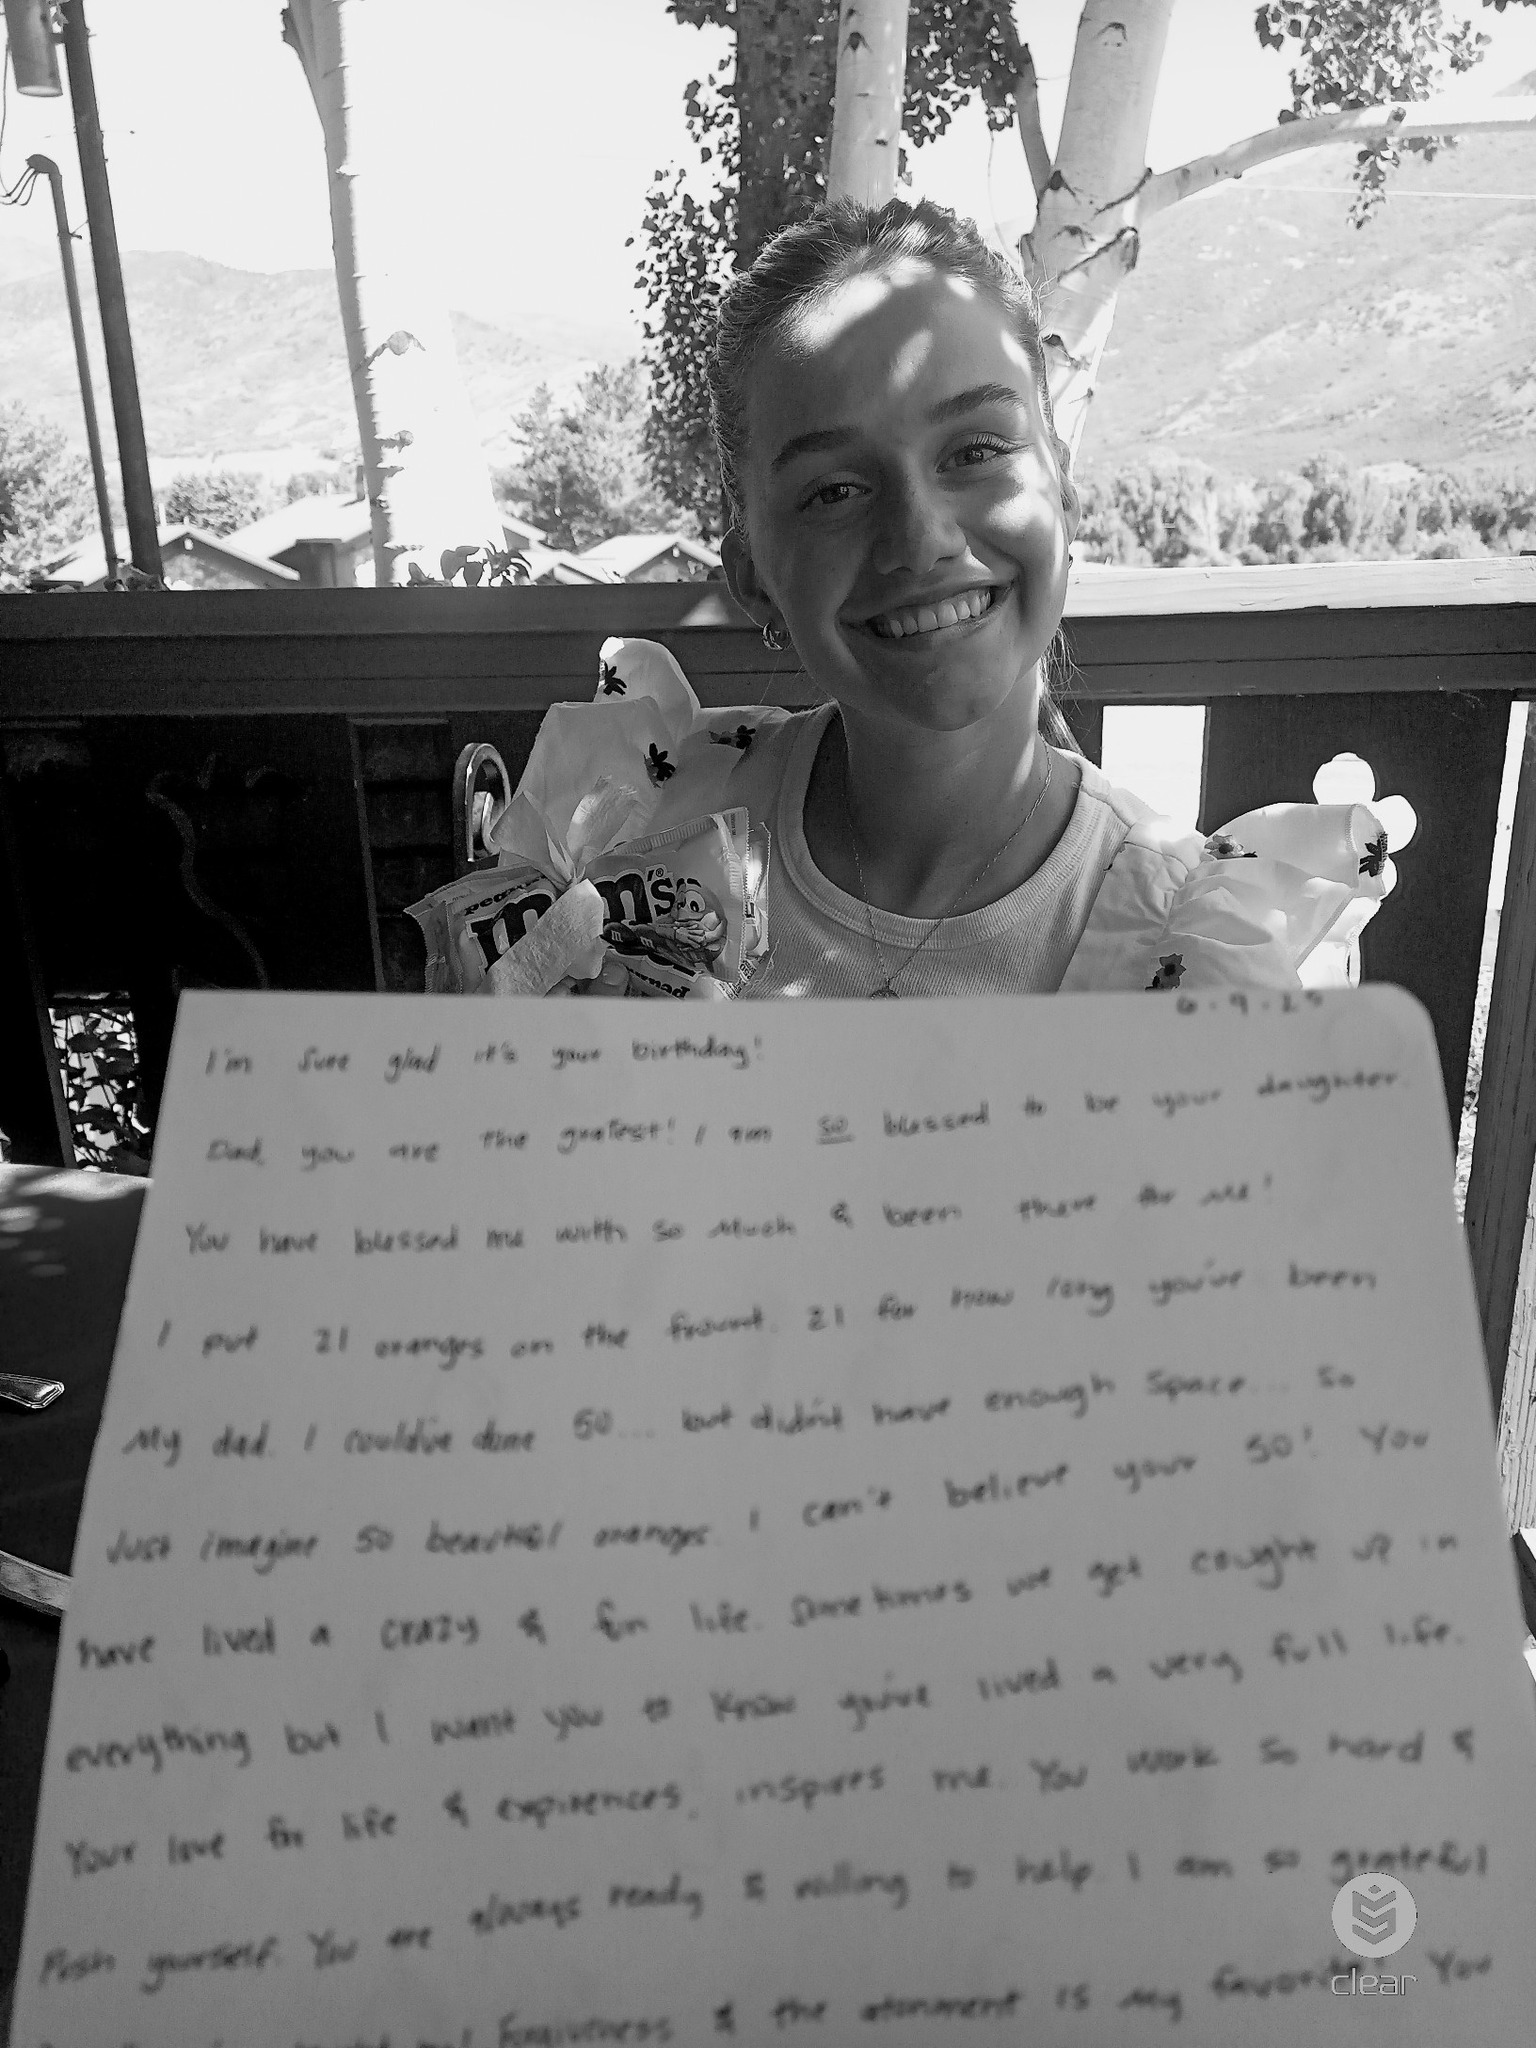 peanut
m
m's
6.9.25
I'm sure glad it's your birthday!
Dad, you are the greatest! I am so blessed to be your daughter.
You have blessed me with so much & been there for me!
I put 21 oranges on the frount. 21 for how long you've been
My dad. I could've done 50... but didn't have enough space... so
Just imagine 50 beautiful oranges. I can't believe your 50! You
have lived a crazy & fun life. Sometimes we get caught up in
everything but I want you to know you've lived a very full life.
Your love for life & expirences, inspires me. You work so hard &
Push yourself. You are always ready & willing to help. I am so grateful
forgiveness & the atonment is my favorite! You
clear